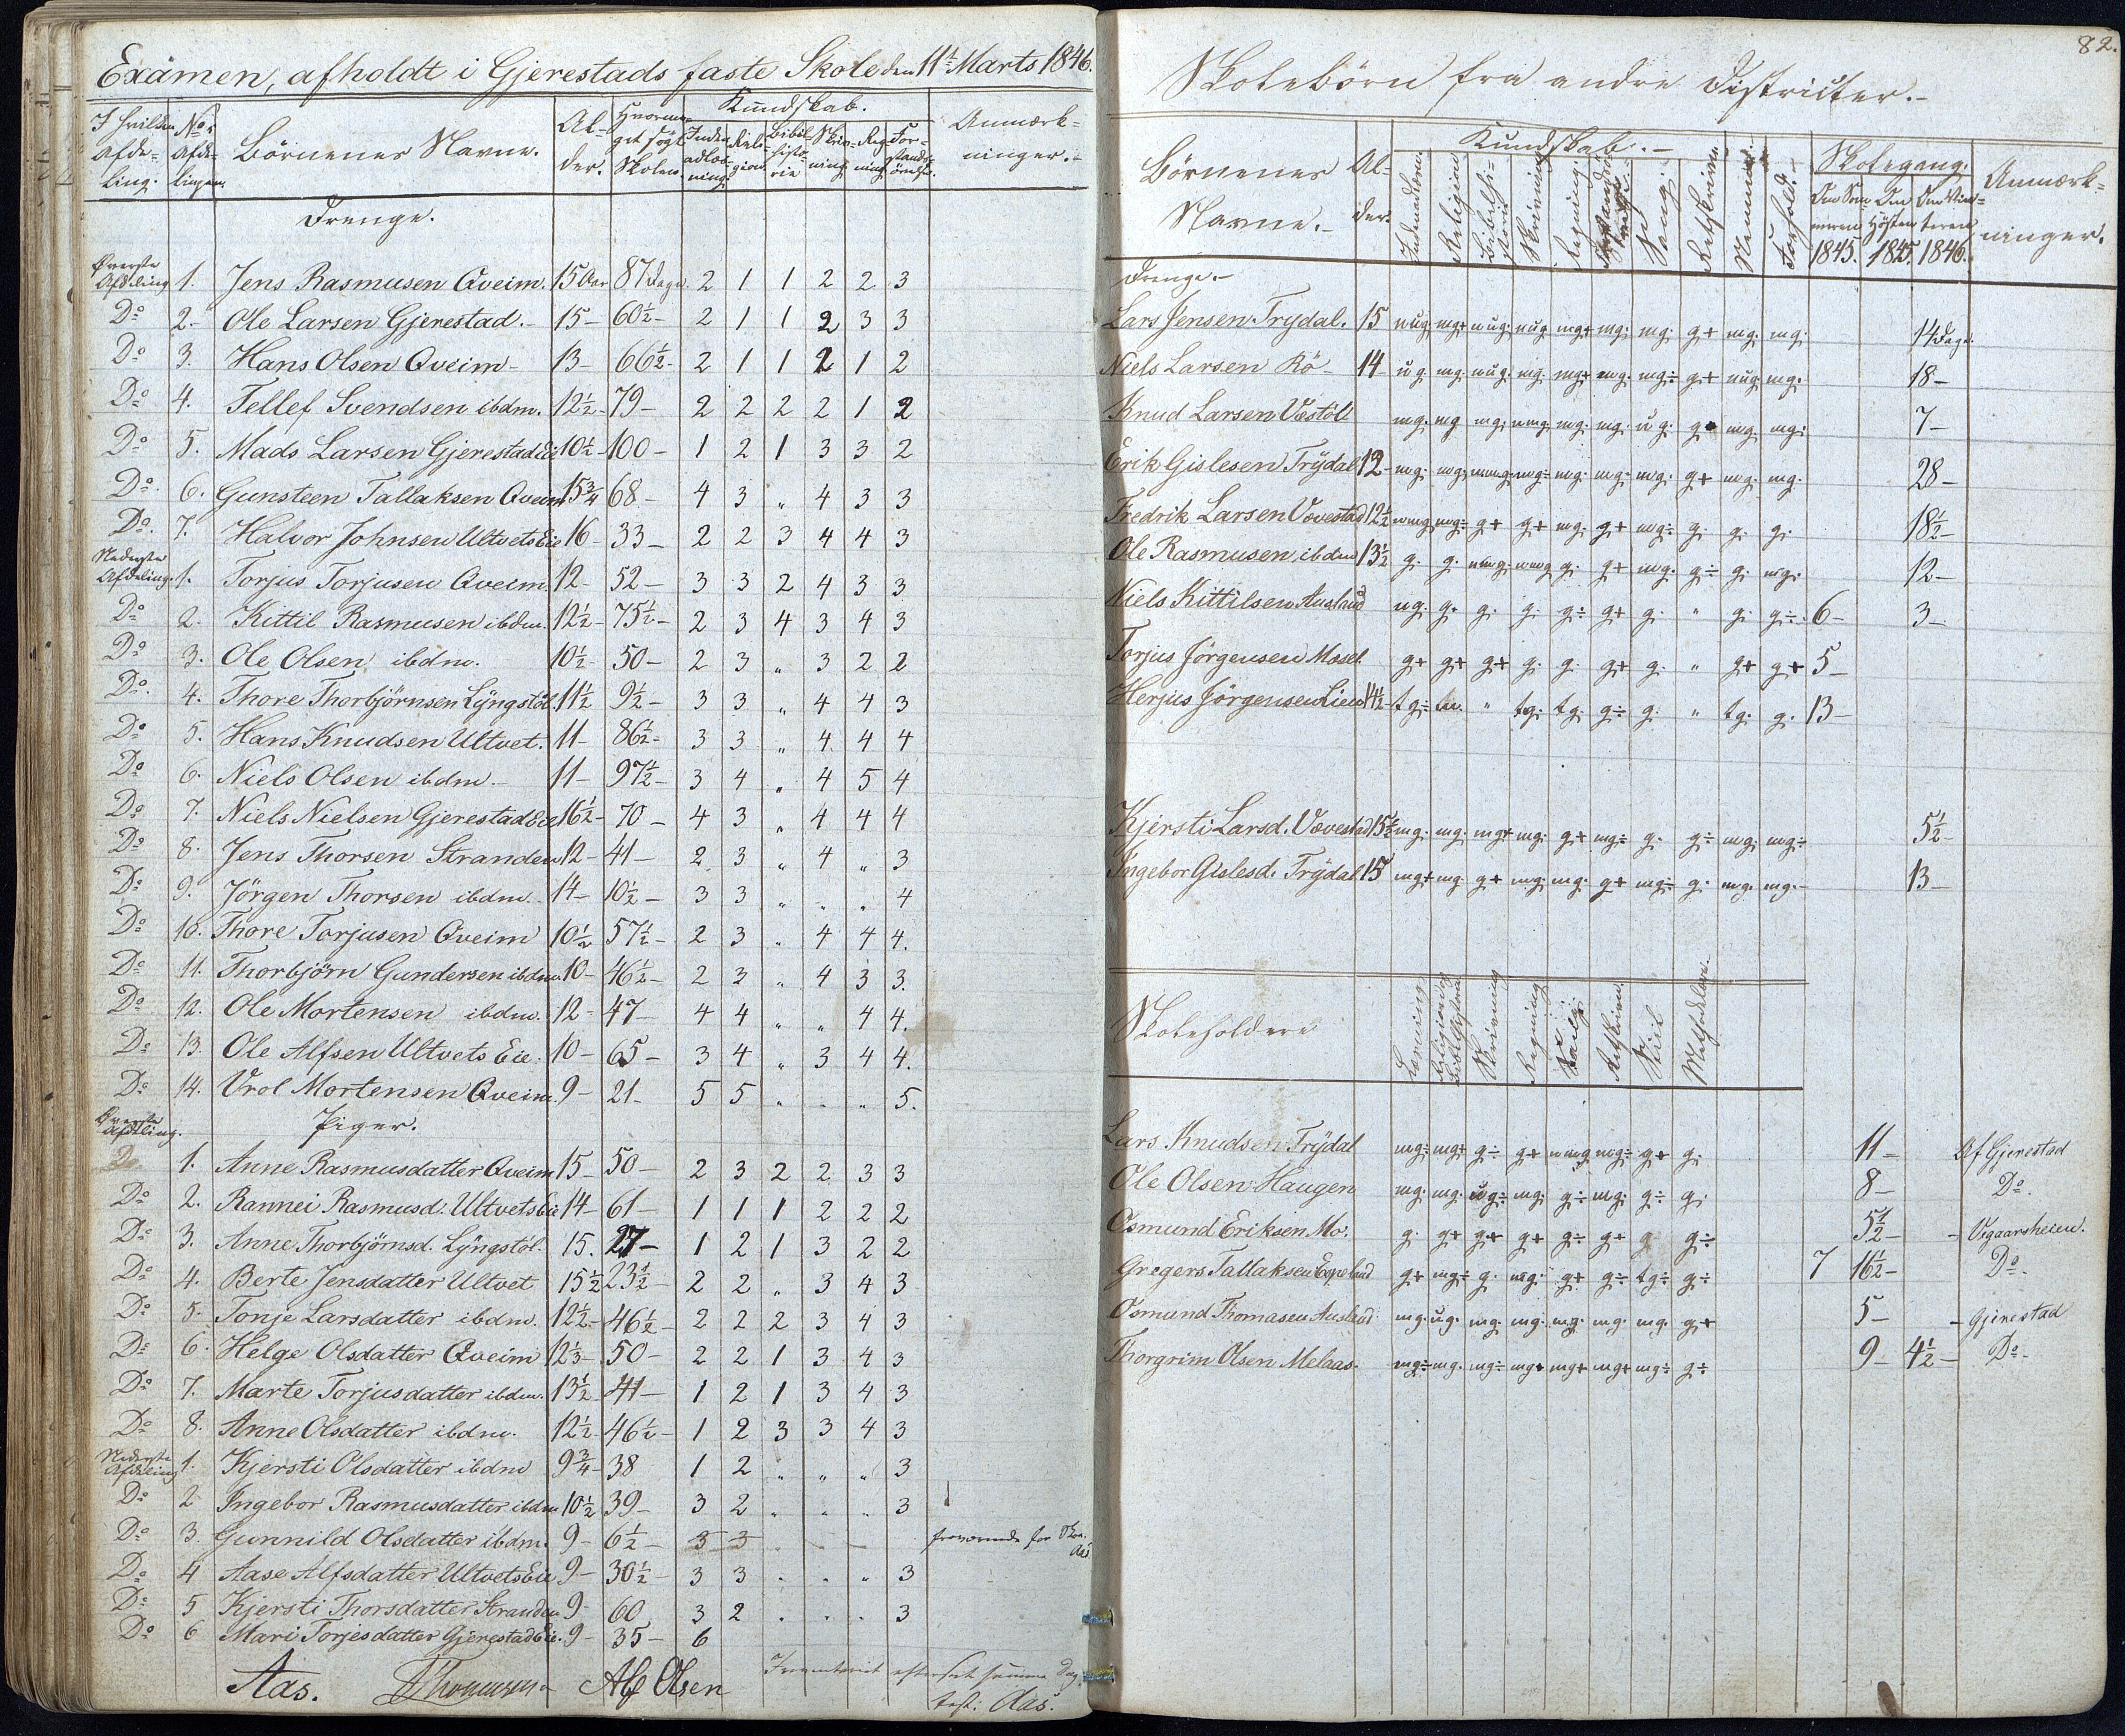 Examen, afholdt i Gjerestads faste Skole den 11te Marts 1846.
I hvilken Afde=ling. No i Afde=lingen. Börnenes Navne. Al=der. Hvorme=get søgt Skolen. Kundskab. Anmærk=ninger.
Indenadlæs=ning. Reli=gion Bibel=histo=rie Skriv=ning Reg=ning For=stands=øvelse.
Drenge.
Øverste Afdeling 1. Jens Rasmusen Qveim. 15 Aar 87 Dage. 2 1 1 2 2 3
Do 2. Ole Larsen Gjerestad. 15 - 60½ - 2 1 1 2 3 3
Do 3. Hans Olsen Qveim - 13 - 66½ - 2 1 1 2 1 2
Do 4. Tellef Svendsen ibdm. 12½ - 79 - 2 2 2 2 1 2
Do 5. Mads Larsen Gjerestad Eie 10½ - 100 - 1 2 1 3 3 2
Do 6. Gunsteen Tallaksen Qveim 15¾ 68 - 4 3 " 4 3 3
Do. 7. Halvor Johnsen Ultvets Eie 16 - 33 - 2 2 3 4 4 3
Nederste Afdeling. 1. Torjus Torjusen Qveim. 12 52 - 3 3 2 4 3 3
Do 2. Kittil Rasmusen ibdm. 12½ - 75½ - 2 3 4 3 4 3
Do 3. Ole Olsen ibdm. 10½ 50 - 2 3 " 3 2 2
Do. 4. Thore Thorbjörnsen Lÿngstöl. 11½ 9½ - 3 3 " 4 4 3
Do 5. Hans Knudsen Ultvet. 11 - 86½ - 3 3 " 4 4 4
Do 6. Niels Olsen ibdm. - 11 - 97½ - 3 4 " 4 5 4
Do 7. Niels Nielsen Gjerestad Eie 16½ - 70 - 4 3 " 4 4 4
Do 8. Jens Thorsen Stranden 12 - 41 - 2 3 " 4 " 3
Do 9. Jörgen Thorsen ibdm. - 14 - 10½ - 3 3 " " " 4
Do 10. Thore Torjusen Qveim 10½ 57½ - 2 3 " 4 4 4.
Do 11. Thorbjörn Gundersen ibdm. 10 - 46½ - 2 3 " 4 3 3.
Do 12. Ole Mortensen ibdm. 12 - 47 - 4 4 " " 4 4.
Do 13. Ole Alfsen Ultvets Eie. 10 - 65 - 3 4 " 3 4 4.
Do 14. Vrol Mortensen Qveim. 9 - 21 - 5 5 " " " 5.
Øverste Afdeling. Piger.
Do 1. Anne Rasmusdatter Qveim 15 - 50 - 2 3 2 2 3 3
Do 2. Rannei Rasmusd. Ultvets Eie 14 - 61 - 1 1 1 2 2 2
Do 3. Anne Thorbjörnsd. Lÿngstöl. 15. 27 - 1 2 1 3 2 2
Do 4. Berte Jensdatter Ultvet 15½ 23½ - 2 2 " 3 4 3
Do 5. Tonje Larsdatter ibdm. 12½ - 46½ - 2 2 2 3 4 3
Do 6. Helge Olsdatter Qveim 12⅓ - 50 - 2 2 1 3 4 3
Do 7. Marte Torjusdatter ibdm. 13½ 41 - 1 2 1 3 4 3
Do 8. Anne Olsdatter ibdm. 12½ - 46½ - 1 2 3 3 4 3
Nederste Afdeling 1. Kjersti Olsdatter ibdm 9¾ - 38 1 2 " " " 3
Do 2 Ingebor Rasmusdatter ibdm 10½ 39 - 3 2 " " " 3
Do 3. Gunnild Olsdatter ibdm. 9 - 6½ - 3 3 fraværende Aas
Do 4 Aase Alfsdatter Ultvets Eie 9 - 30½ - 3 3 " " " 3
Do 5 Kjersti Thorsdatter Stranden 9 - 60 3 2 . . . 3
Do 6 Mari Torjesdatter Gjerestad Eie. 9 - 35 - 6
Aas. Thomesen Alf Olsen Inventariet efterseet samme Dag.
test: Aas.
82.
Skolebörn fra andre Districter.
Börnenes Navne. Al=der. Kundskab. Skolegang. Anmærk=ninger.
Indenadlæsn. Religion Bibelhistorie Skrivning Regning Forstandsøvelse Sang. Retskrivn. Nemme. Forhold. Den Som=meren 1845. Den Høsten 1845. Den Vin=teren 1846.
Drenge. -
Lars Jensen Trydal. 15 mg+ mg+ mg. mg. g+ mg. mg. 14 Dage.
Niels Larsen Rö - 14 - ug. mg. mg. mg+ mg. mg÷ g+ mg. 18 -
Knud Larsen Vestöl mg. mg mg. mg. mg. ug. mg. mg. 7 -
Erik Gislesen Trÿdal 12 - mg. mg. mg÷ mg. mg. mg. g+ mg. mg. 28 -
Fredrik Larsen Vævestad 12½ mg÷ g+ g+ mg. g+ mg÷ g. g. g. 18½ -
Ole Rasmusen ibdm 13½ g. g. g. g+ mg. g÷ g. mg. 12 -
Niels Kittilsen Ausland ug. g. g. g. g÷ g+ g. " g. g÷ 6 - 3 -
Torjus Jörgensen Mosel. g+ g+ g+ g. g. g+ g. " g+ g+ 5 -
Herjus Jörgensen Lien 14½ - tg÷ " tg. tg. g÷ g. " tg. g. 13 -
Kjersti Larsd. Vævestad 15½ mg. mg. mg+ mg. g+ mg÷ g. g÷ mg. mg÷ 5½ -
Ingebor Gislesd. Trÿdal 15 mg+ mg. g+ mg. mg. g+ mg÷ g. mg. mg. - 13 -
Skoleholdere Læsning. Religion og Bibelhistorie Skrivning Regning Sang Retskrivn. Stiil Methodelære.
Lars Knudsen Trÿdal mg÷ mg+ g÷ g+ mg÷ g+ g. 11 - Af Gjerestad
Ole Olsen Haugen mg. mg. ug÷ mg. g÷ mg. g÷ g. 8 - Do.
Osmund Eriksen Mo. g. g+ g+ g+ g÷ g+ g g÷ 5½ - - Vegaarsheien.
Gregers Tallaksen Espeland g+ mg÷ g. mg. g+ g÷ tg÷ g÷ 7 16½ - Do -
Osmund Thomasen Ausland mg. ug. mg. mg. mg. mg. mg. g+ 5 - - Gjerestad
Thorgrim Olsen Melaas. mg÷ mg. mg÷ mg+ mg+ mg+ mg÷ g÷ 9 - 4½ - Do -